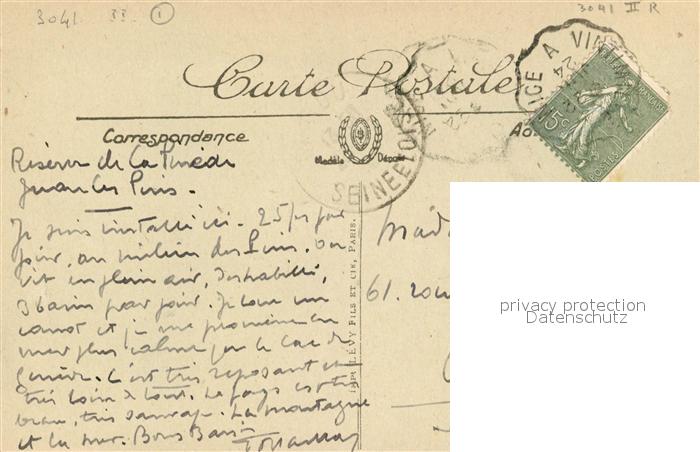 3041
3041 II R
NICE A VIN
24
Carte Postale
15c
POSTES
Correspondance
Modèle Déposé
SEINE
Réserve de La Pinède
Juan les Pins.
Je suis installé ici. 25 frs par
jour, au milieu des Pins. On
vit en plein air, déshabillé,
3 bains par jour. Je loue un
canot et je me promène en
mer plus calme que le Lac de
Genève. C'est très reposant et
très loin de tout. Le pays est très
beau, très sauvage. La montagne
et la mer. Bons Baisers
61. rou
IMP. LÉVY FILS ET CIE, PARIS.
privacy protection
Datenschutz